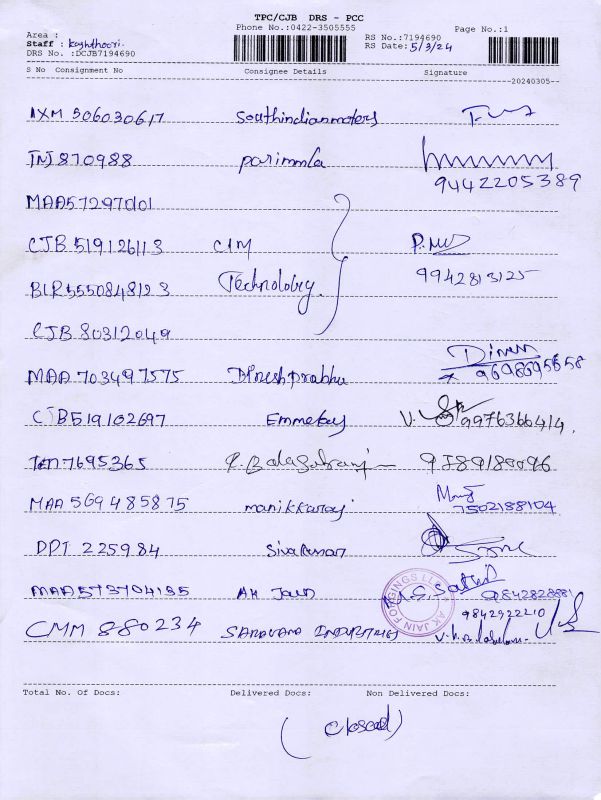 TPC/CJB DRS - PCC
Phone No.:0422-3505555
Page No.:1
Area :
Staff : Kashthoori.
RS No.:7194690
DRS No. :DCJB7194690
RS Date: 5/3/24
S No Consignment No Consignee Details Signature
20240305
IXM 506030617 Southindianmotors
TNJ 870988 parimmla
9442205389
MAA572970101
CJB 519126113 CIM
BLR 5550848123 Technology. 9942813125
CJB 80312049
MAA 703497575 Dineshprabhu Dinesh
9698695658
CJB519102697 Emmekay V. 9976366414.
7695365 9789180096
MAA 569485875 manikkaraj
7502188104
DPI 225984 Sivakumar
MAA573704155 AK Jain 9842828881
AK JAIN FORGINGS LLP
9842922210
CMM 880234 SARAVANA INDUSTRIES
Total No. Of Docs: Delivered Docs: Non Delivered Docs:
(Closed)